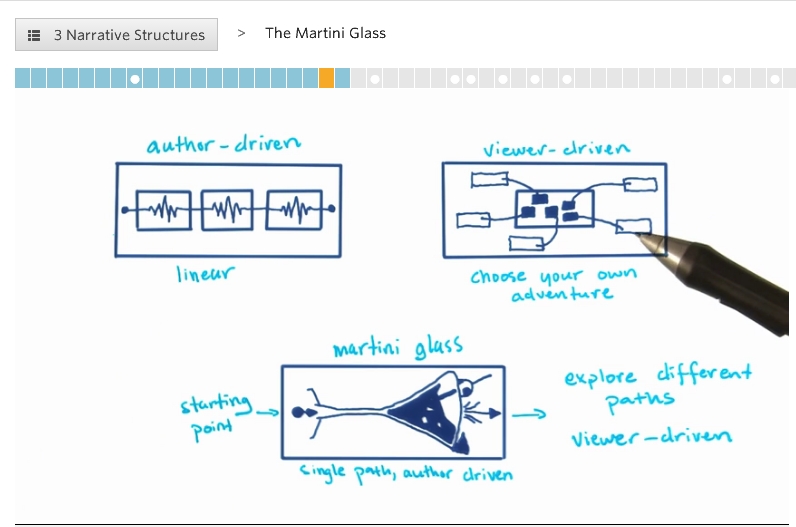 3 Narrative Structures > The Martini Glass
author-driven
viewer-driven
linear
choose your own
adventure
martini glass
starting
point
single path, author driven
explore different
paths
viewer-driven